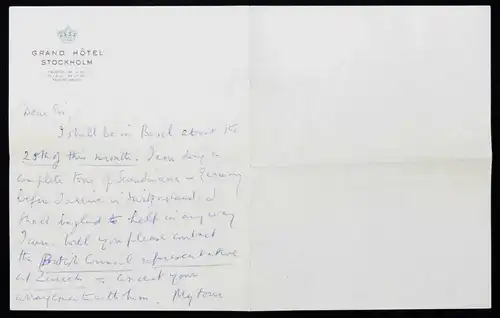 GRAND HÔTEL
STOCKHOLM
Dear Sir,
I shall be in Basel about the
25th of this month. I am doing a
complete tour of Scandinavia & Germany
before I arrive in Switzerland. I
shall be glad to help in any way
I can. Will you please contact
the British Council representative
at Zurich & your
arrangements with him. My tour